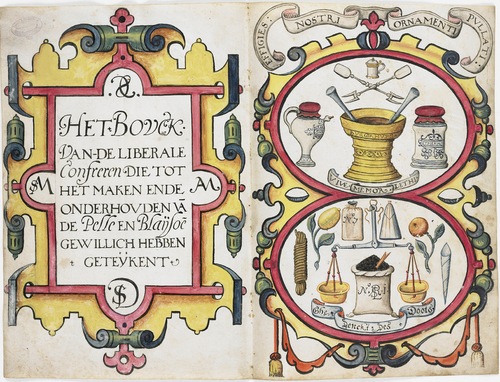 HET·BOVCK:
VAN·DE LIBERALE
Confreren DIE TOT
HET MAKEN ENDE
ONDERHOVDEN VÃ
DE Pelle EN Blaysoē
GEWILLICH HEBBEN
· GETEŸKENT·
EFIGIES: NOSTRI ORNAMENTI PVLLATI:
MEMOR
Ghe denckt Des Doots